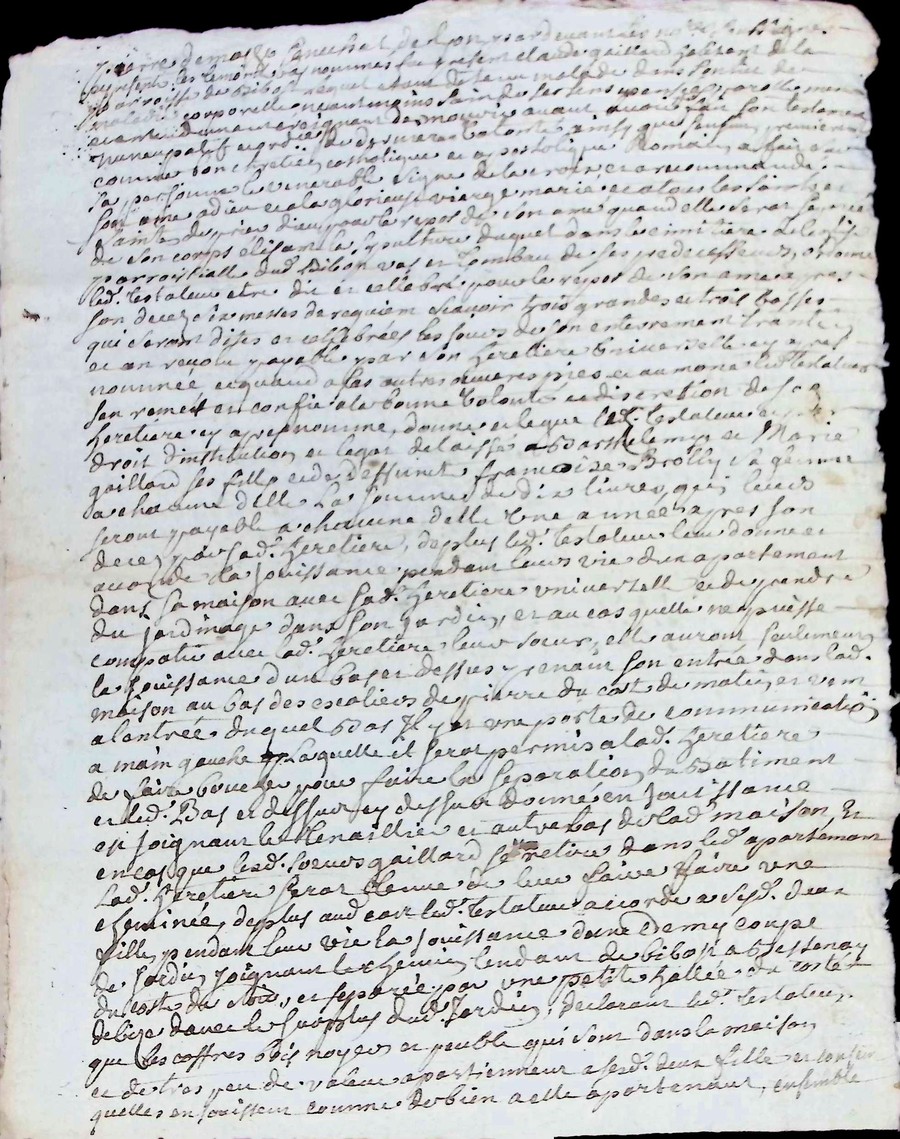 pardevant les no.res soussignes
presents les temoins cy nommés fut present claude gaillard habitant de la
parroisse de Bibost lequel etant detenu malade dans son lit de
maladie corporelle neantmoins sain de ses sens pensées parolle memoire
et entendement craignant de mourir avant avoir fait son testament
nuncupatif de ses dernieres volontés ainsy que sensuit, premierement
comme bon chretien catholique et apostolique Romain a fait sur
sa personne le venerable signe de la croix et a recommandé
son ame a dieu et a la glorieuse vierge marie et a tous les saints et
saintes de prier dieu pour le repos de son ame quand elle serat separée
de son corps élisant la sepulture duquel dans le cimitiere de leglise
parroissialle dud. Bibost vas et tombau de ses predecesseurs, ordonne
led. testateur etre dit et cellebré pour le repos de son ame apres
son decez six messes de requiem scavoir trois grandes et trois basses
qui seront dites et célébrées les jours de son enterrement trantin
et an revolu payable par son heretiere universelle cy apres
nommée et quand a les autres œuvres pies et aumone led. testateur
sen remet et confie a la bonne volonté et discretion de sa
heretiere cy apres nommé, donne et legue led. testateur et par
droit dinstitution et legat delaissé a Barthelemye et Marie
gaillard ses filles et de deffunte francoise Brolly sa femme
a chacune delle la somme de dix livres qui leurs
seront payable a chacune delle une année apres son
decez par sad. heretiere, de plus led. testateur leur donne et
accorde la jouissance pendant leurs vie dun apartement
dans sa maison avec sad. heretiere universelle et de prendre
du jardinage dans son jardin, et au cas quelle ne puisse
compatir avec lad. heretiere leur sœur, elle auront seulement
la jouissance dun bas et dessus prenant son entrée dans lad.
maison au bas des escaliers de pierre du coté de matin et vent
a lentrée duquel bas il y a une porte de communication
a main gauche laquelle il serat permis a lad. heretiere
de faire boucher pour faire la separation du batiment
et led. Bas et dessus cy dessus donné en jouissance
est joignant le thenaillier et autre bas de lad. maison, et
en cas que lesd. sœurs gaillard se retire dans led. apartement
lad. heretiere serat tenue de leur faire faire une
cheminée, de plus aud. cas led. testateur accorde a sesd. deux
filles pendant leur vie la jouissance dune demy coupe
de jardin joignant le chemin tendant de bibost a Bessenay
du costé du soir, et separée par une petite hallée du costé
de bize davec le surplus dud. Jardin, declarant led. testateur
que les coffres bois noyer et peuble qui sont dans la maison
et de tres peu de valeur apartiennent a sesd. deux filles et
quelles en jouissent comme de bien a elle apartenant, ensemble